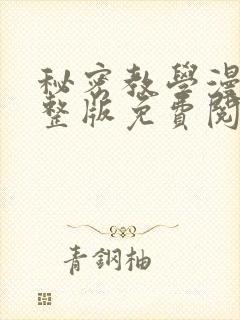 秘密教學漫
整版免費閱
青鋼柚